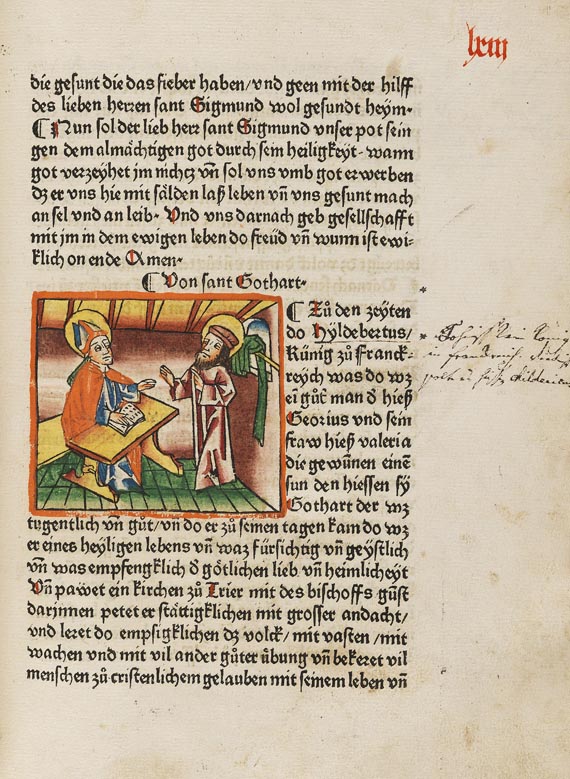 lxiij
die gesunt die das fieber haben/vnd geen mit der hilff
des lieben herren sant Sigmund wol gesundt heym·
¶ Nun sol der lieb herr sant Sigmund vnser pot sein
gen dem almächtigen got durch sein heiligkeyt· wann
got verzeyhet jm nichcz vñ sol vns vmb got erwerben
dz er vns hie mit sälden laß leben vñ vns gesunt mach
an sel vnd an leib· Vnd vns darnach geb gesellschafft
mit jm in dem ewigen leben do freüd vñ wunn ist ewi-
klich on ende Amen·
¶ Von sant Gothart·
¶ Zů den zeyten
do Hyldebertus/
Künig zů Franck-
reych was do wz
ei gůt man d hieß
Georius vnd sein
fraw hieß valeria
die gewunnen einē
sun den hiessen sy
Gothart der wz
tugentlich vñ gůt/vñ do er zů seinen tagen kam do wz
er eines heyligen lebens vñ waz fürsichtig vñ geystlich
vñ was empfengklich d götlichen lieb vñ heimlicheyt
Vñ pawet ein kirchen zů Trier mit des bischoffs gůst
darjnnen petet er stättigklichen mit grosser andacht/
vnd leret do empsigklichen dz volck/mit vasten/mit
wachen vnd mit vil ander gůter übung vñ bekeret vil
menschen zů cristenlichem gelauben mit seinem leben vñ